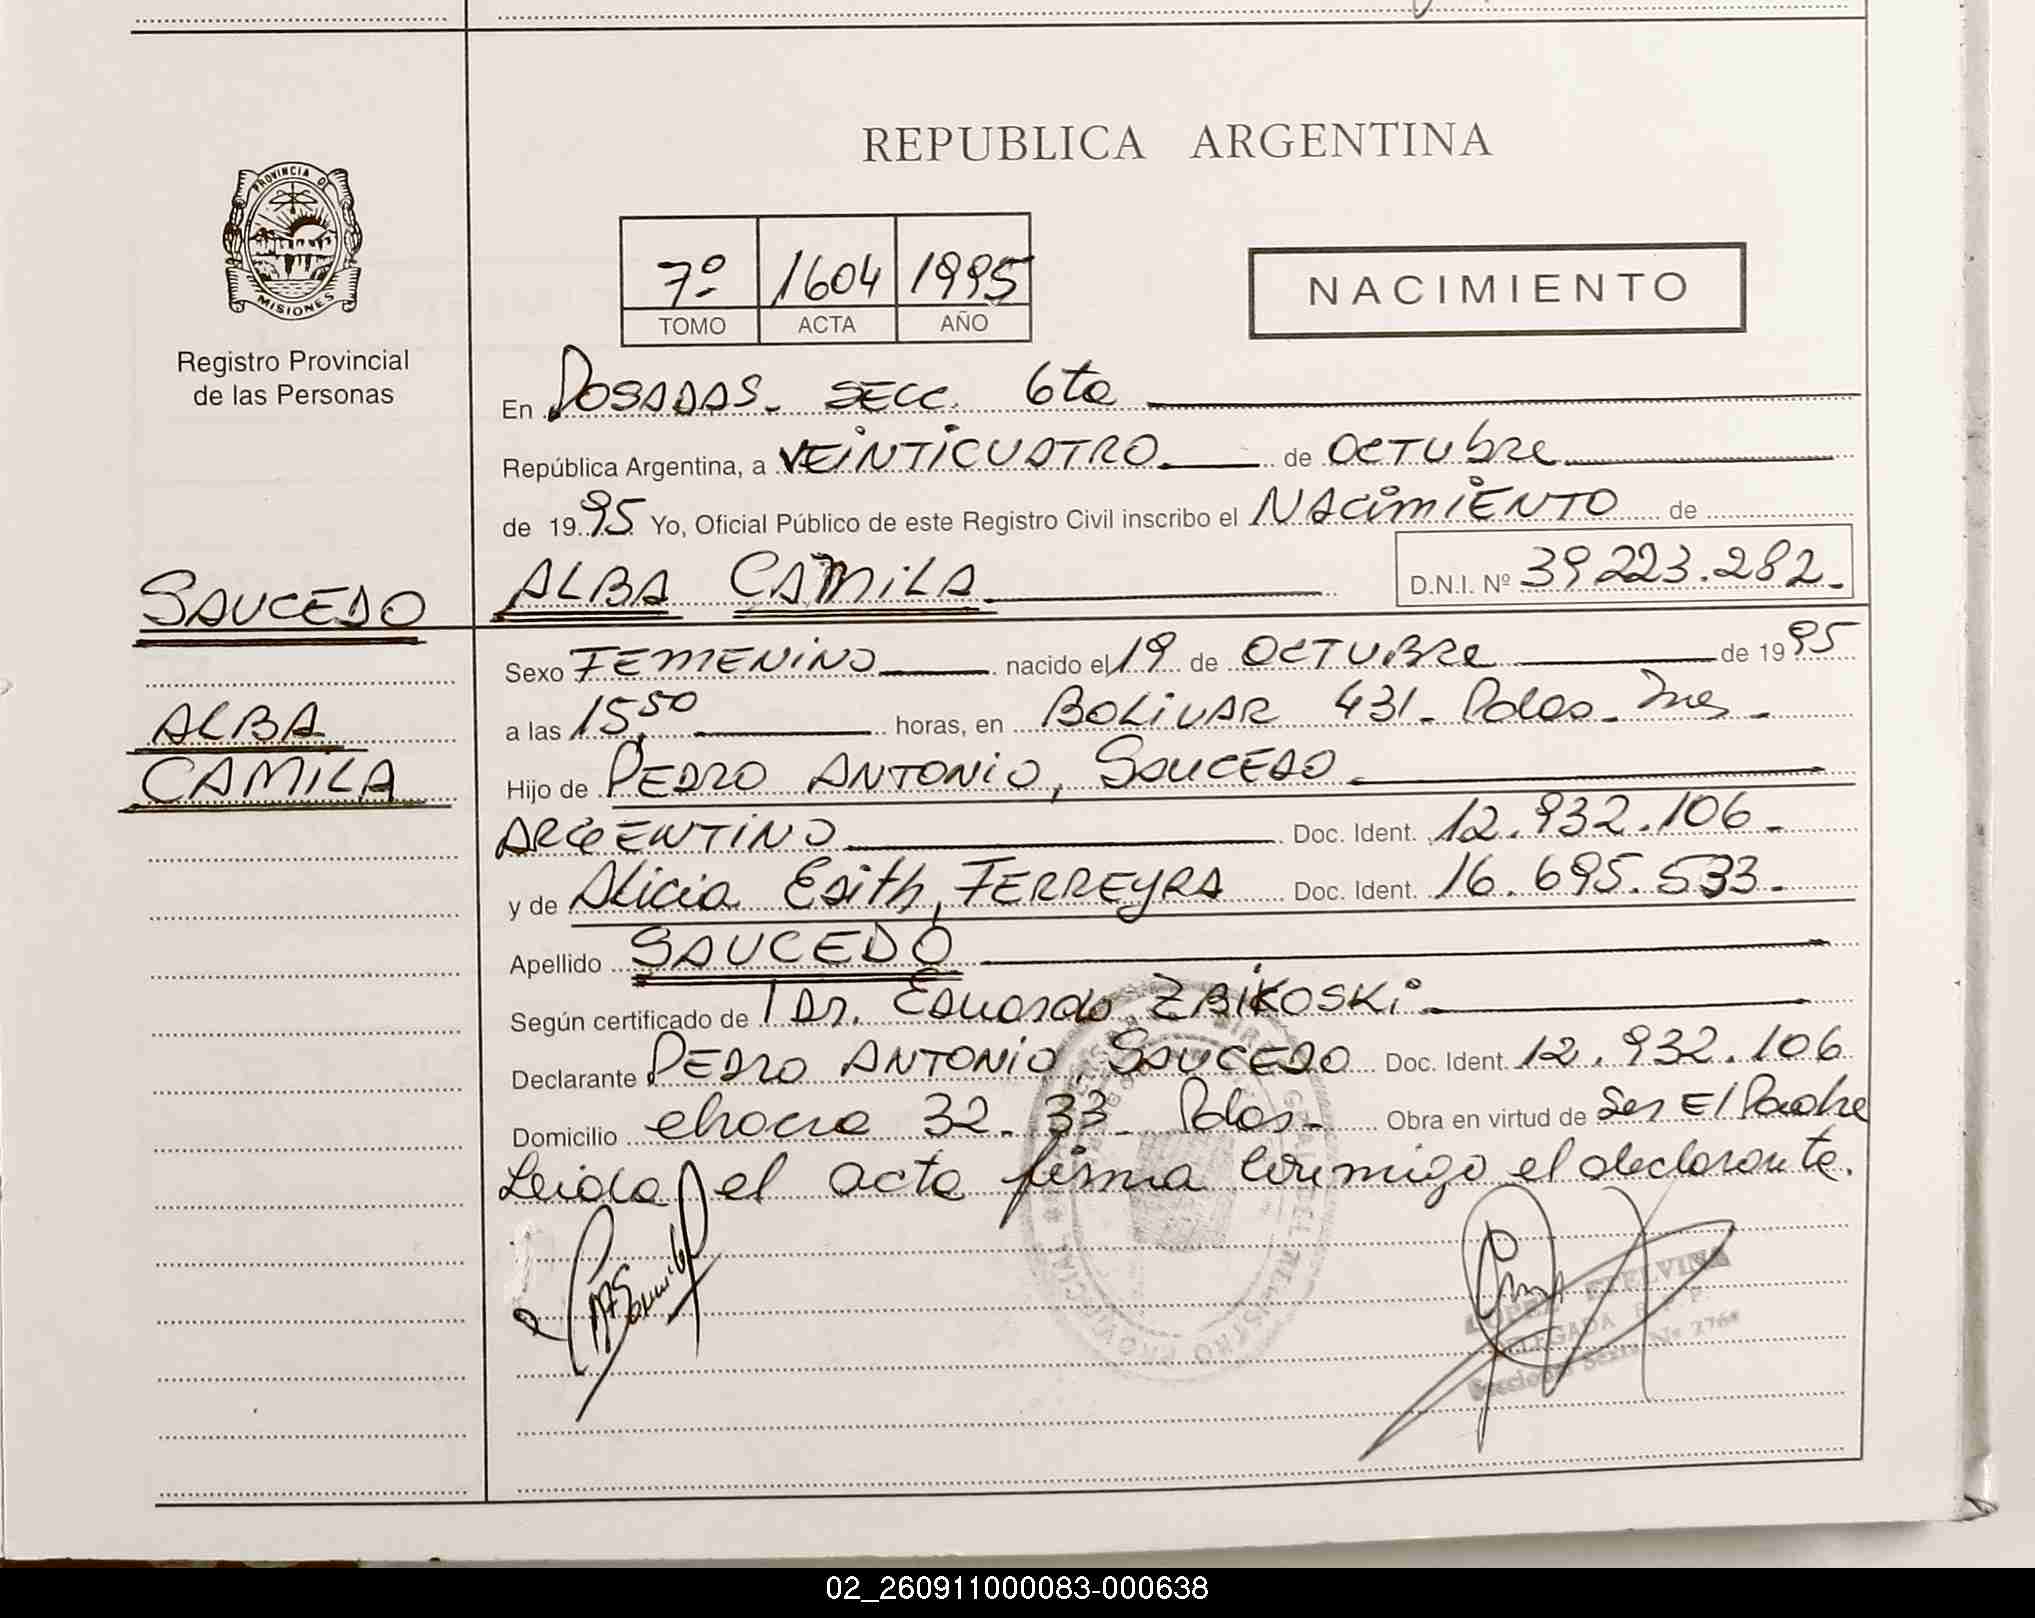 REPUBLICA ARGENTINA
PROVINCIA D
MISIONES
Registro Provincial
de las Personas
7º 1604 1995
TOMO ACTA AÑO
NACIMIENTO
En POSADAS. SECC. 6ta
República Argentina, a VEINTICUATRO. de OCTUbre
de 1995 Yo, Oficial Público de este Registro Civil inscribo el NACIMIENTO de
SAUCEDO
ALBA CAMILA D.N.I. Nº 39.223.282.
Sexo FEMENINO nacido el 19 de OCTUBRE de 1995
ALBA
a las 15,50 horas, en BOLIVAR 431. Pdas. Mnes.
CAMILA
Hijo de PEDRO ANTONIO, SAUCEDO.
ARGENTINO Doc. Ident. 12.932.106.
y de Alicia Edith, FERREYRA Doc. Ident. 16.695.533.
Apellido SAUCEDO
Según certificado de Dr. Eduardo ZBIKOSKI.
Declarante PEDRO ANTONIO, SAUCEDO Doc. Ident. 12.932.106
Domicilio chacra 32.33. Pdas. Obra en virtud de Ser El Padre
Leida el acta firma conmigo el declarante.
ETELVINA
DELEGADA
02_260911000083-000638